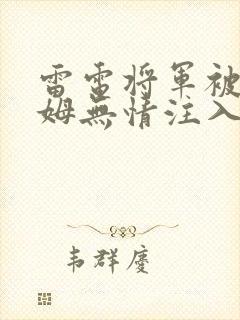 雷電将軍被
姆無情注入
韦群慶